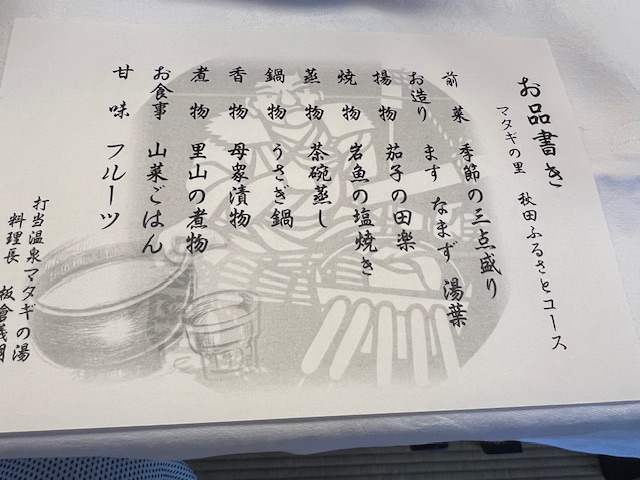 お品書き
マタギの里 秋田ふるさとコース
前菜 季節の三点盛り
お造り ます なまず 湯葉
揚物 茄子の田楽
焼物 岩魚の塩焼き
蒸物 茶碗蒸し
鍋物 うさぎ鍋
香物 母家漬物
煮物 里山の煮物
お食事 山菜ごはん
甘味 フルーツ
打当温泉マタギの湯
料理長 板倉義明